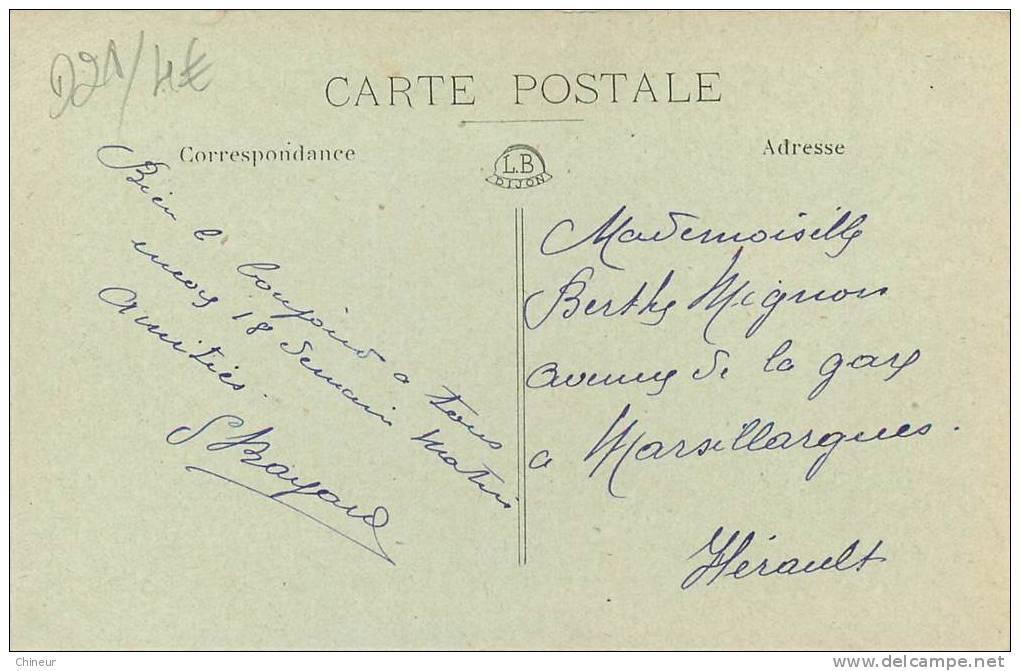 D21/4€
CARTE POSTALE
Correspondance
L.B
DIJON
Adresse
Bien le bonjour a tous
18 demain matin
amitiés.
SBayard
Mademoiselle
Berthe Mignon
avenue de la gare
a Marsillargues.
Hérault
Chineur
www.delcampe.net